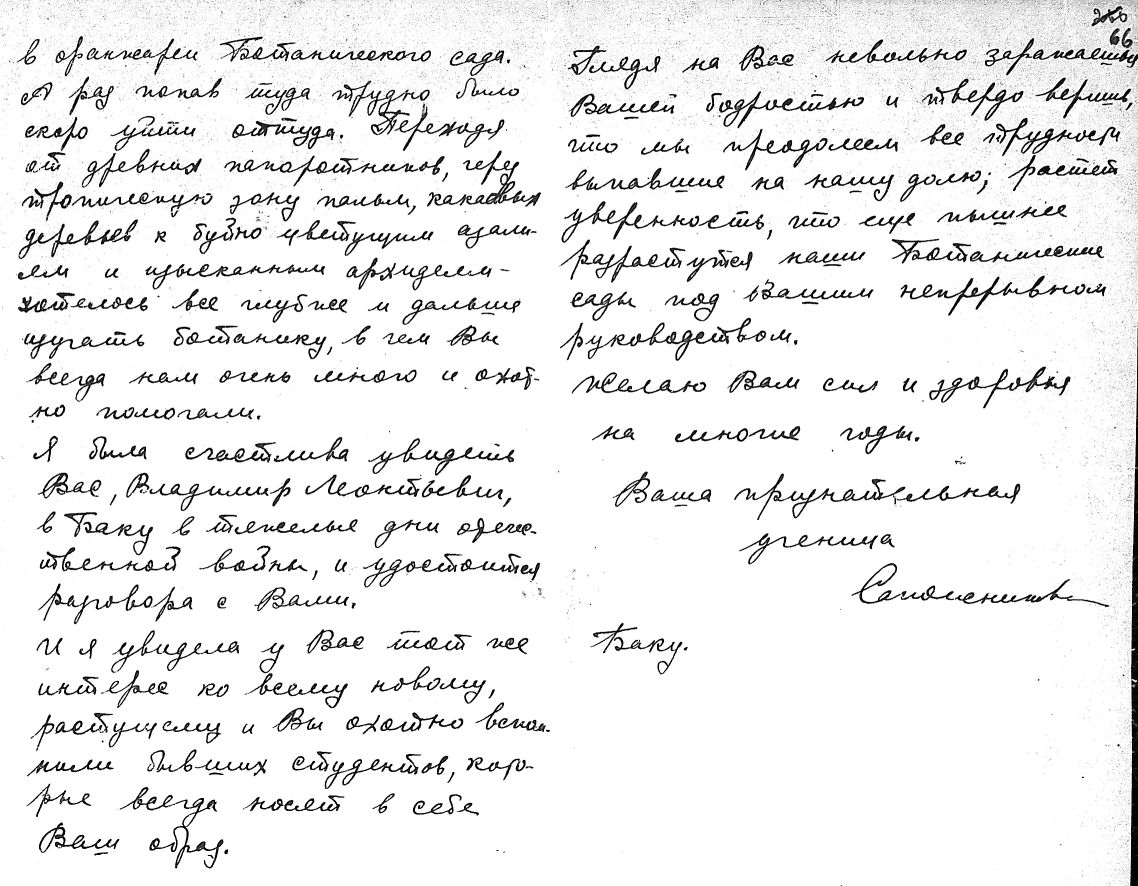 в оранжереи Ботанического сада.
А раз попав туда трудно было
скоро уйти оттуда. Переходя
от древних папоротников, через
тропическую зону пальм, какаовых
деревьев к буйно цветущим азали-
ям и изысканным архидеям-
хотелось все глубже и дальше
изучать ботанику, в чем Вы
всегда нам очень много и охот-
но помогали.
Я была счастлива увидеть
Вас, Владимир Леонтьевич,
в Баку в тяжелые дни отече-
ственной войны, и удостоится
разговора с Вами.
И я увидела у Вас тот же
интерес ко всему новому,
растущему и Вы охотно вспом-
нили бывших студентов, кото-
рые всегда носят в себе
Ваш образ.
66
Глядя на Вас невольно заражаешься
Вашей бодростью и твердо веришь,
что мы преодолеем все трудности
выпавшие на нашу долю; растет
уверенность, что еще пышнее
разрастутся наши Ботанические
сады под Вашим непрерывном
руководством.
Желаю Вам сил и здоровья
на многие годы.
Ваша признательная
ученица
Баку.